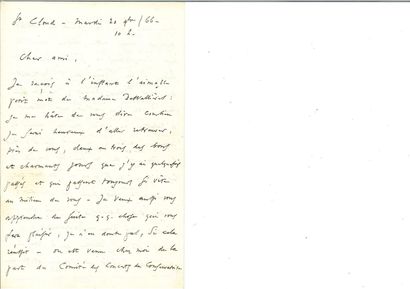 St Cloud - Mardi 20 9bre/66-
10 h.
Cher ami,
Je reçois à l'instant l'aimable
petit mot de madame
je me hâte de vous dire combien
je serai heureux d'aller retrouver,
près de vous, deux ou trois des bons
et charmants jours que j'y ai quelquefois
passés et qui passent toujours si vite
au milieu de vous - Je veux aussi vous
apprendre de suite q.q. chose qui vous
fera plaisir, je n'en doute pas, si cela
réussit - on est venu chez moi de la
part du Comité des Concerts du Conservatoire